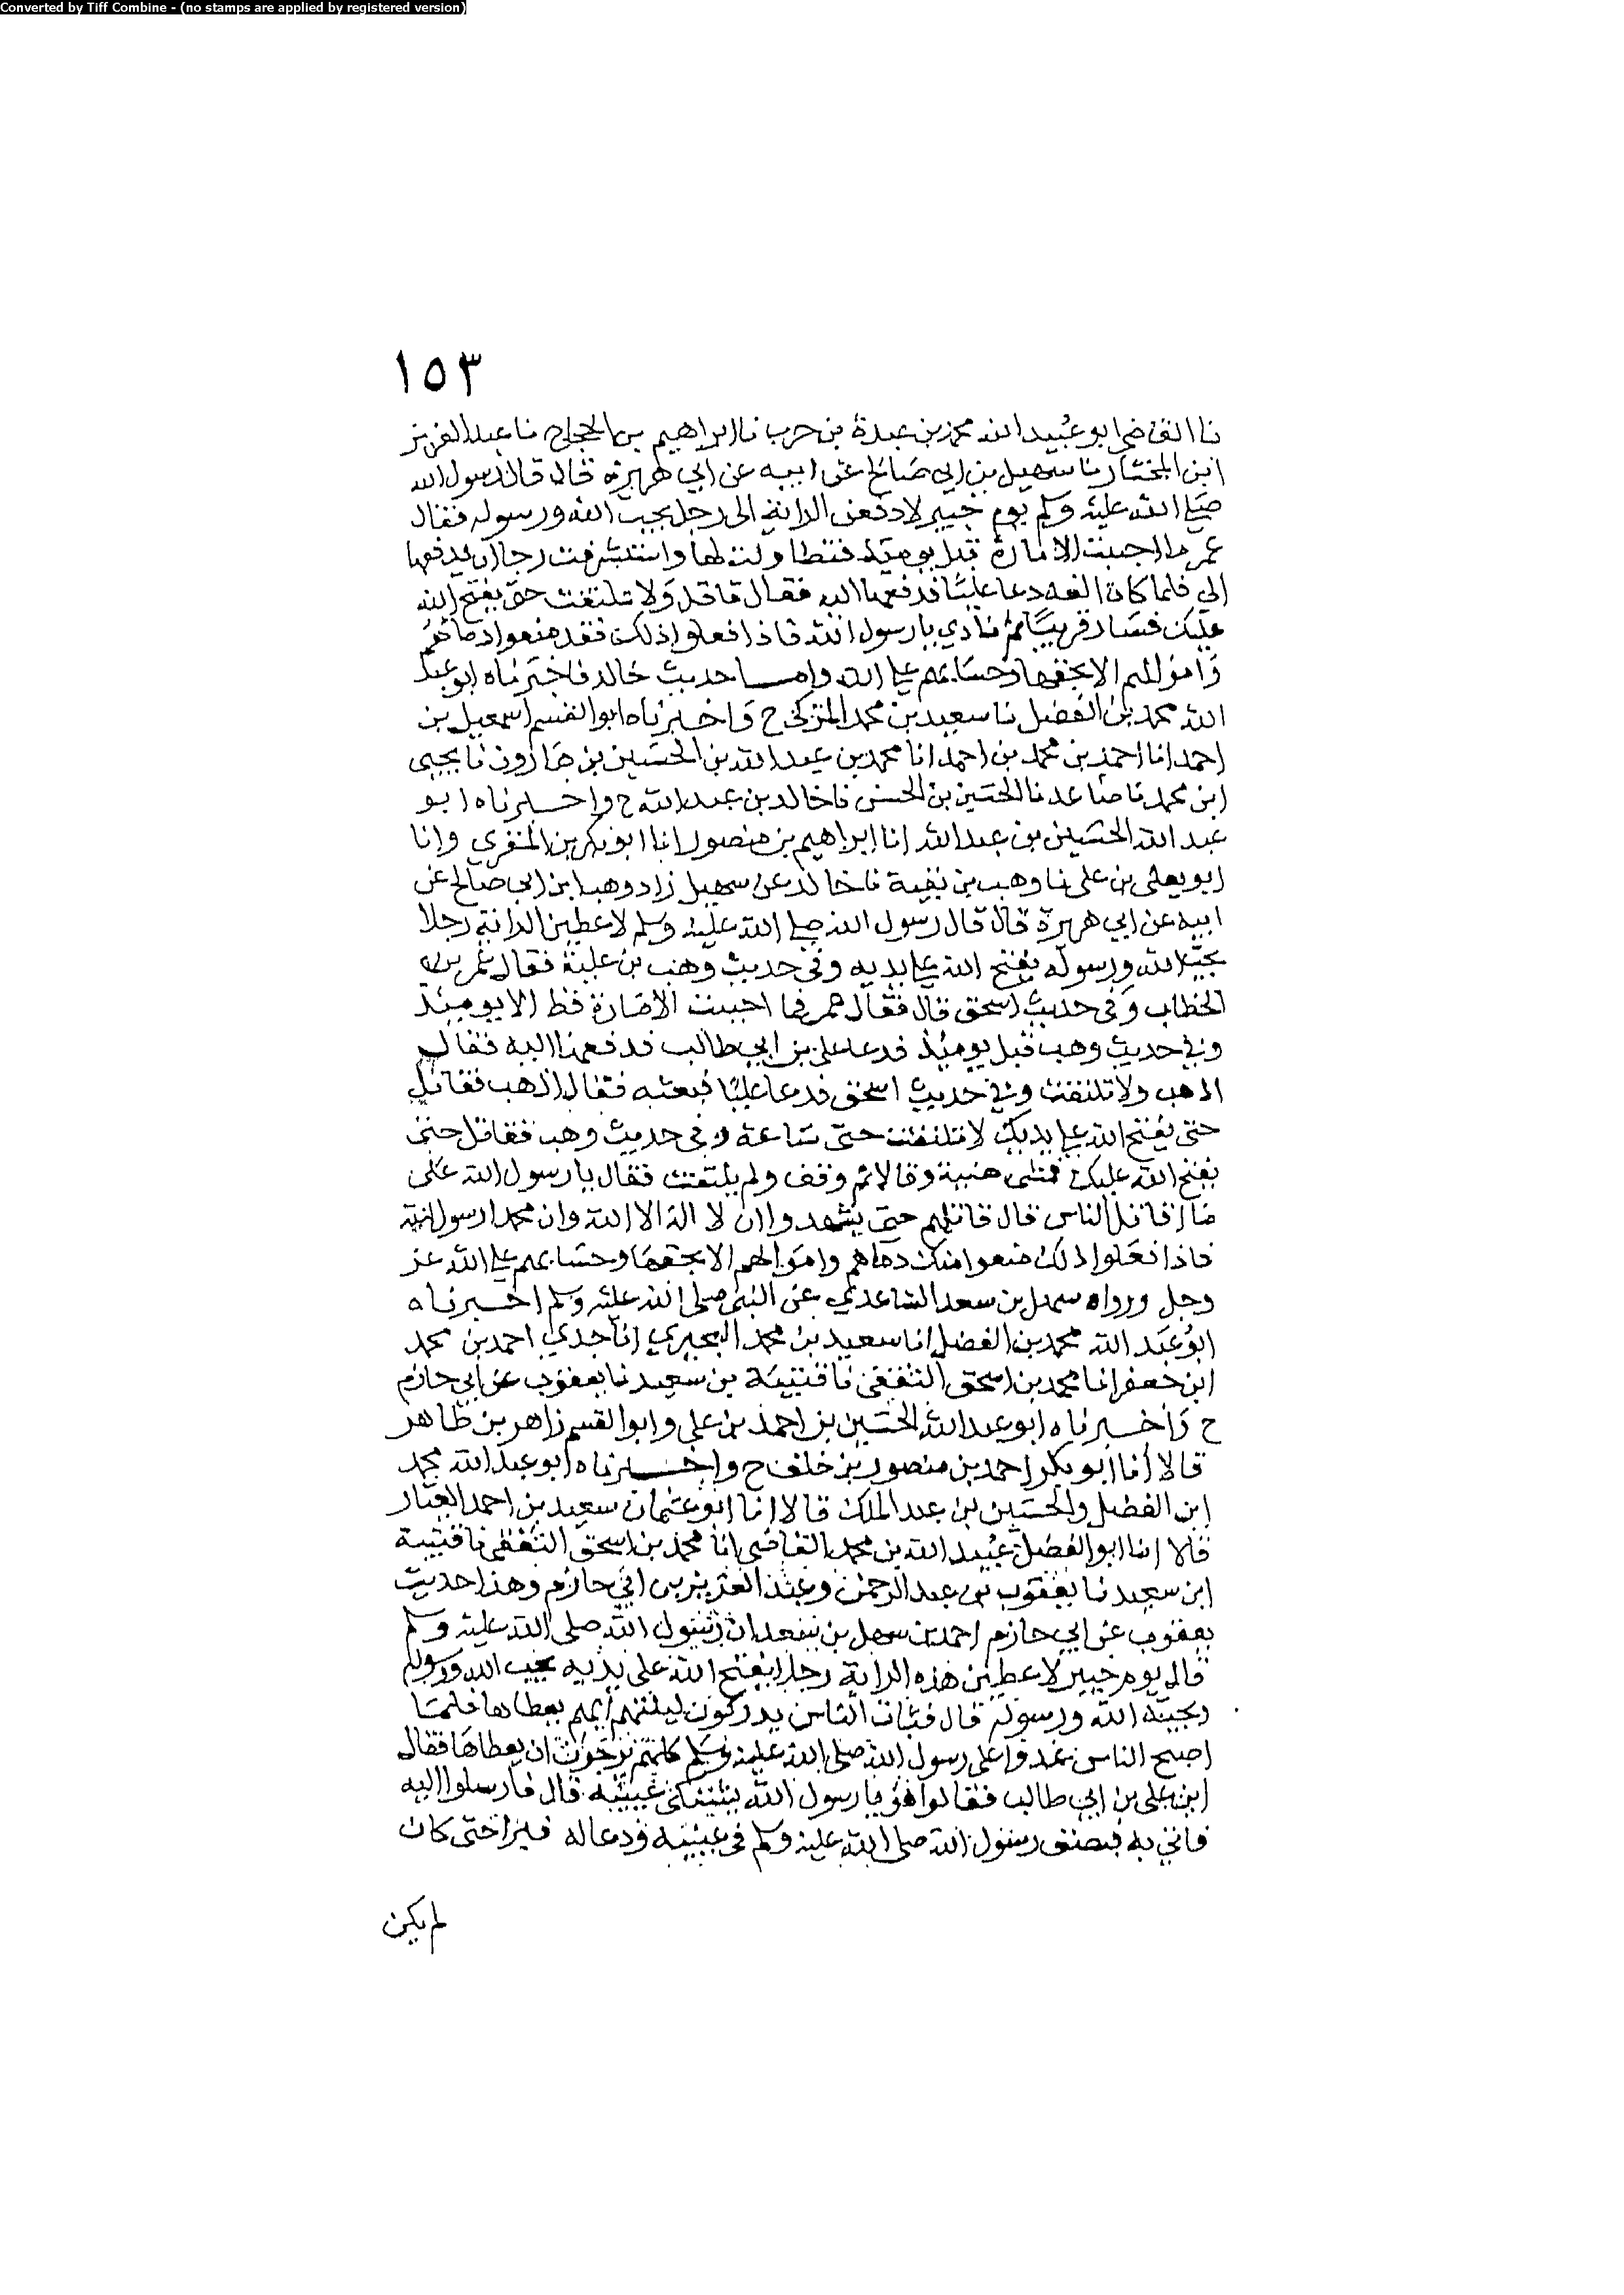 Converted by Tiff Combine - (no stamps are applied by registered version)
١٥٣
نا القاضي ابو عُبيد الله محمد بن عبدة بن حرب نا ابراهيم بن الحجاج نا عبد العزيز
ابن المختار نا سهيل بن ابي صَالح عن ابيه عن ابي هريرة قال قال رسول الله
صَلى الله عليه وسلم يوم خيبر لادفعن الراية الى رجل يحب الله ورسوله فقال
عمر ما احببت الامارة قبل يومئذ فتطاولت لها واستشرفت رجا ان يدفعها
الي فلما كان الغد دعا عليًا فدفعها اليه فقال قاتل وَلا تلتفت حتى يفتح الله
عليك فسَار قريبًا ثم نادي يا رسول الله فاذا فعلوا ذلك فقد منعوا دماهم
وَاموَالهم الا بحقها وحسَابهم على الله وامـا حديث خالد فاخبرَناه ابو عبد
الله محمد بن الفضل نا سعيد بن محمد المزكي ح وَاخـبرناه ابو القسم اسمعيل بن
احمد انا احمد بن محمد بن احمد انا محمد بن عبد الله بن الحسَين بن هَارون نا يحيى
ابن محمد نا صاعد نا الحسَين بن الحسن نا خالد بن عبد الله ح واخـبرناه ابو
عبد الله الحسَين بن عبد الله انا ابراهيم بن منصور انا ابو بكر بن المقري وانا
ابو يعلى بن على نا وهب بن بقية نا خالد عن سهيل زاد وهب ابن ابي صالح عن
ابيه عن ابي هريرة قال قال رسول الله صلى الله عليه وسلم لاعطين الراية رجلا
يحبّ الله ورسوله يفتح الله على يديه وفى حديث وهب بن علية فقال عمر بن
الخطاب وَفى حديث اسحق قال فقال عمر فما احببت الامَارة قط الا يوميئذ
وفي حديث وهب قبل يومئذ فدعا على بن ابي طالب فدفعها اليه فقال
اذهب ولا تلتفت وفي حديث اسحق فدعا عليًا فبعثه فقال اذهب فقاتل
حتى يفتح الله على يديك لا تلتفت حتى سَاعة وفى حديث وهب فقاتل حتى
يفتح الله عليك فمشى هنيهة وقالا ثم وقف ولم يلتفت فقال يا رسول الله علىَ
مَا اقاتل الناس قال قاتلهم حتى يشهدوا ان لا اله الا الله وان محمدا رسول الله
فاذا فعَلوا ذلك منعوا منك دماهم وامَوالهم الا بحقهَا وحسَابهم على الله عز
وجل ورواه سهل بن سعد السَاعدي عن النبى صلى الله عليه وسَلم اخـبرناه
ابُو عبَد الله محمد بن الفضل انا سعيد بن محمد البحيري انا جدي احمد بن محمد
ابن جعفر انا محمد بن اسحق الثقفى نا قتيبَة بن سعيد نا يعقوب عن ابي حازم
ح وَاخـبرناه ابو عبد الله الحسَين بن احمد بن على وابو القسم زاهر بن طاهر
قالا أنا ابو بكر احمد بن منصور بن خلف ح واخـبرناه ابو عبد الله محمد
ابن الفضل والحسَين بن عبد الملك قالا انا ابو عثمان سعيد بن احمد العيار
قالا انا ابو الفضل عُبيد الله بن محمد القاضي انا محمد بن اسحق الثقفى نا قتيبة
ابن سعيد نا يعقوب بن عبد الرحمن وعبد العزيز بن ابي حازم وهذا حديث
يعقوب عن ابي حازم احمد بن سهل بن سعد ان رسول الله صلى الله عليه وسلم
قال يوم خيبر لاعطين هذه الراية رجلا يفتح الله على يديه يحب الله ورسوله
ويحبّه الله ورسوله قال فبات الناس يدركون ليلتهم أيهم يعطاها فلمَا
اصبح الناس غدوا على رسول الله صلى الله عليه وسلم كلهم يرجون ان يعطاهَا فقال
اين على بن ابي طالب فقالوا هو يا رسول الله يشتكي عَينيه قال فارسلوا اليه
فاتي به فبصق رسول الله صلى الله عليه وسلم فى عينيه ودعا له فبرا حتى كان
لم يكن